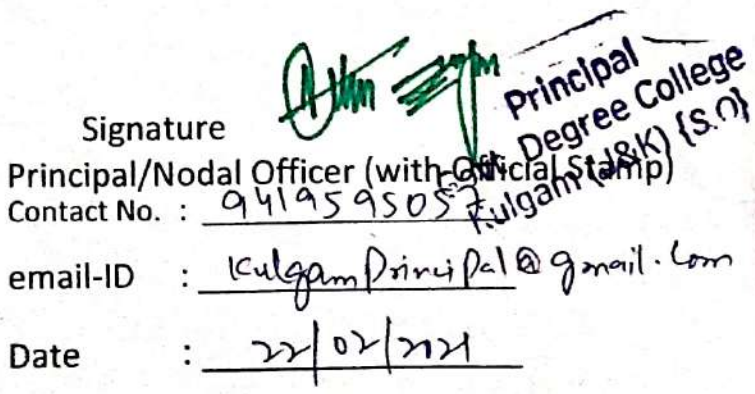 Principal
Degree College
Kulgam (J&K) {S.O}
Signature
Principal/Nodal Officer (with Official Stamp)
Contact No. : 9419595057
email-ID : KulgamPrincipal@gmail.com
Date : 22/02/2021